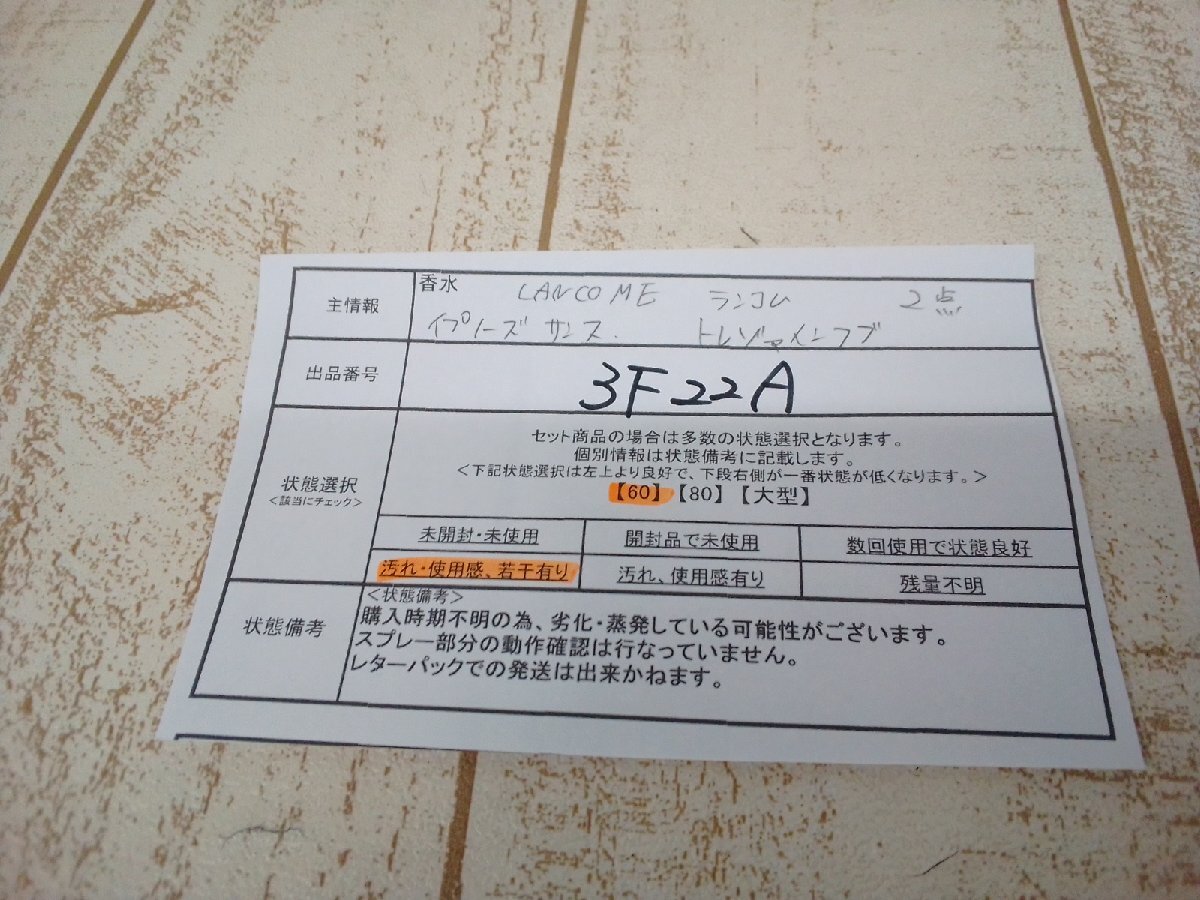 主情報
香水 LANCOME ランコム 2点
イプノーズ サンス. トレゾァインラブ
出品番号
3F22A
状態選択
<該当にチェック>
セット商品の場合は多数の状態選択となります。
個別情報は状態備考に記載します。
<下記状態選択は左上より良好で、下段右側が一番状態が低くなります。>
【60】【80】【大型】
未開封・未使用 開封品で未使用 数回使用で状態良好
汚れ・使用感、若干有り 汚れ、使用感有り 残量不明
状態備考
<状態備考>
購入時期不明の為、劣化・蒸発している可能性がございます。
スプレー部分の動作確認は行なっていません。
レターパックでの発送は出来かねます。